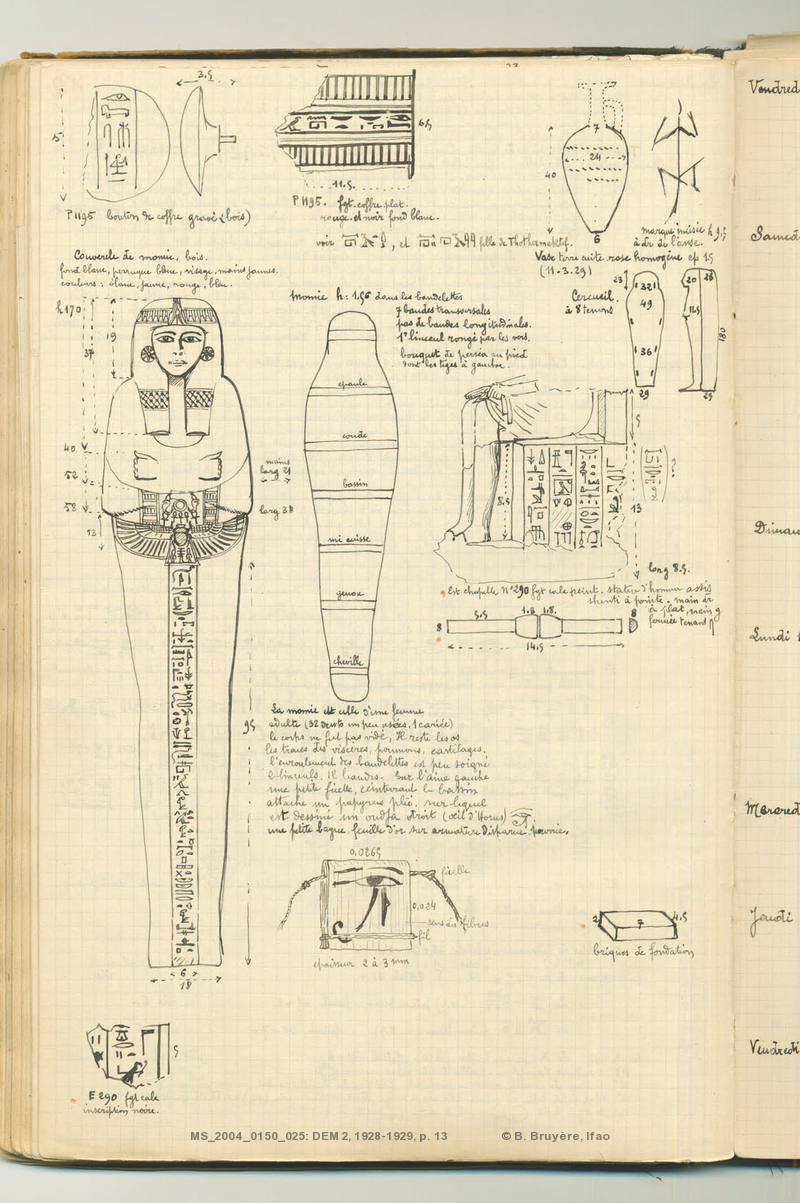 3.5
5
P1195 bouton de coffre gravé (bois)
65
11.5
P1195. fgt. coffre plat.
rouge et noir fond blanc.
voir , et fille de Thothermaktef.
7
24
40
6
marque incisée h 9,5
à dr de l'anse.
Vase terre cuite rose homogène ep 15
(11-3.29)
Couvercle de momie, bois.
fond blanc, perruque bleue, visage, mains jaunes.
couleurs : blanc, jaune, rouge, bleu.
h 170
37
19
40
52
58
13
mains
larg 21
95
6
18
Momie h: 1.56 dans les bandelettes
7 bandes transversales
pas de bandes longitudinales.
1er linceul rongé par les vers.
bouquet de persea au pied
dont les tiges à gauche.
epaule
coude
bassin
mi cuisse
genou
cheville
Cercueil.
à 8 tenons
23
32
49
36
29
20
180
29
5
8.5
13
?
long 8.5.
Est chapelle N° 290 fgt calc peint. statue d'homme assis
shenti à pointe - main dr
à plat, main g
fermée tenant
8
5.5
1.8.
8
14.5
La momie est celle d'une femme
adulte (32 dents un peu usées, 1 cariée)
le corps ne fut pas vidé, Il reste les os
les traces des viscères, poumons, cartilages,
l'enroulement des bandelettes est peu soigné
Sur l'aine gauche
une petite ficelle, ceinturant le bassin
attache un papyrus plié, sur lequel
est dessiné un oudja droit (œil d'Horus)
une petite bague, feuille d'or sur armature disparue, pourrie,
0,0265
ficelle
0,024
sens des fibres
fil
epaisseur 2 à 3 mm
2
7
4.5
briques de fondation
5
E 290 fgt calc
inscription noire.
Vendred
Samedi
Diman
Lundi 1
Mercred
Jeudi
Vendredi
MS_2004_0150_025: DEM 2, 1928-1929, p. 13 © B. Bruyère, Ifao